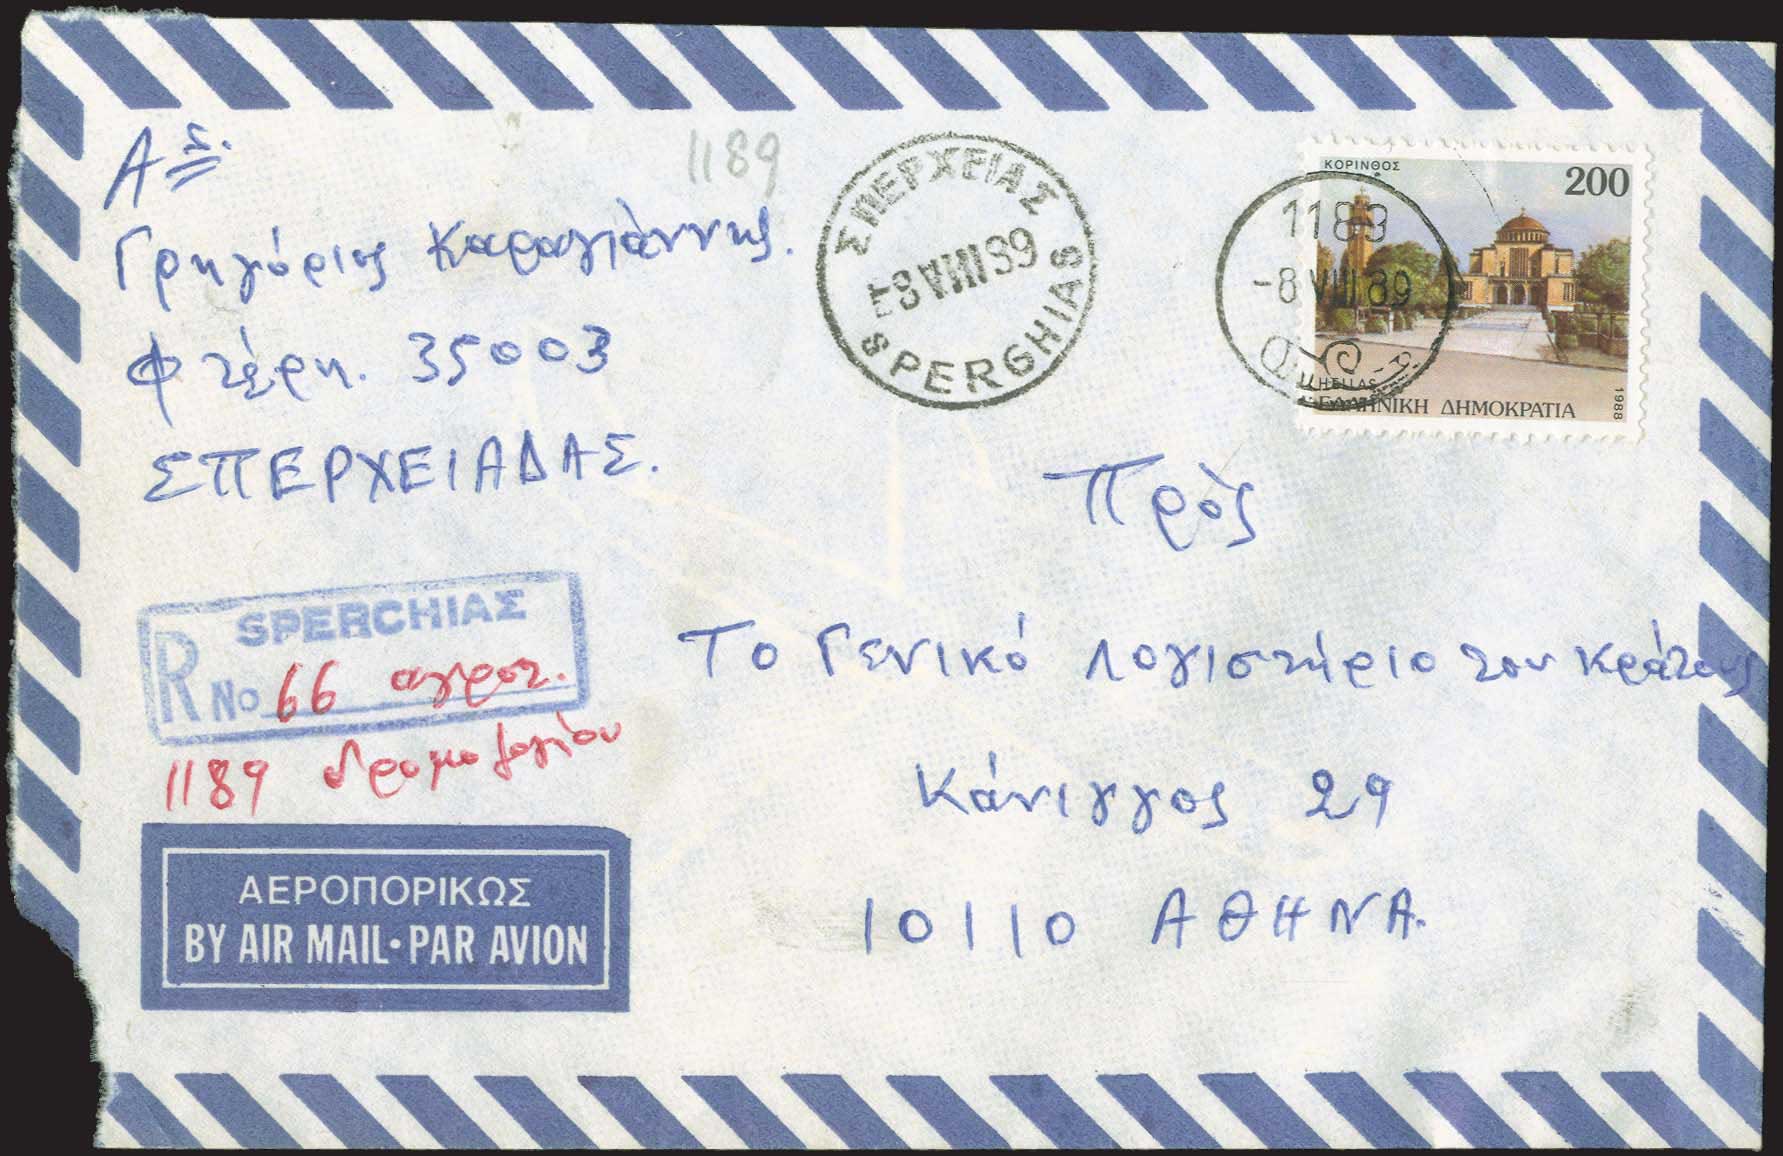 Ας.
Γρηγόριος Καραγιάννης.
Φτέρη. 35003
ΣΠΕΡΧΕΙΑΔΑΣ.
1189
ΣΠΕΡΧΕΙΑΣ
8 VIII 89
SPERGHIAS
ΚΟΡΙΝΘΟΣ
200
1189
-8 VIII 89
HELLAS
ΕΛΛΗΝΙΚΗ ΔΗΜΟΚΡΑΤΙΑ
1988
Πρὸς
Το Γενικό Λογιστήριο του Κράτους
Κάνιγγος 29
10110 ΑΘΗΝΑ.
SPERCHIAΣ
R No 66 αγροτ.
1189 δρομολογίου
ΑΕΡΟΠΟΡΙΚΩΣ
BY AIR MAIL•PAR AVION